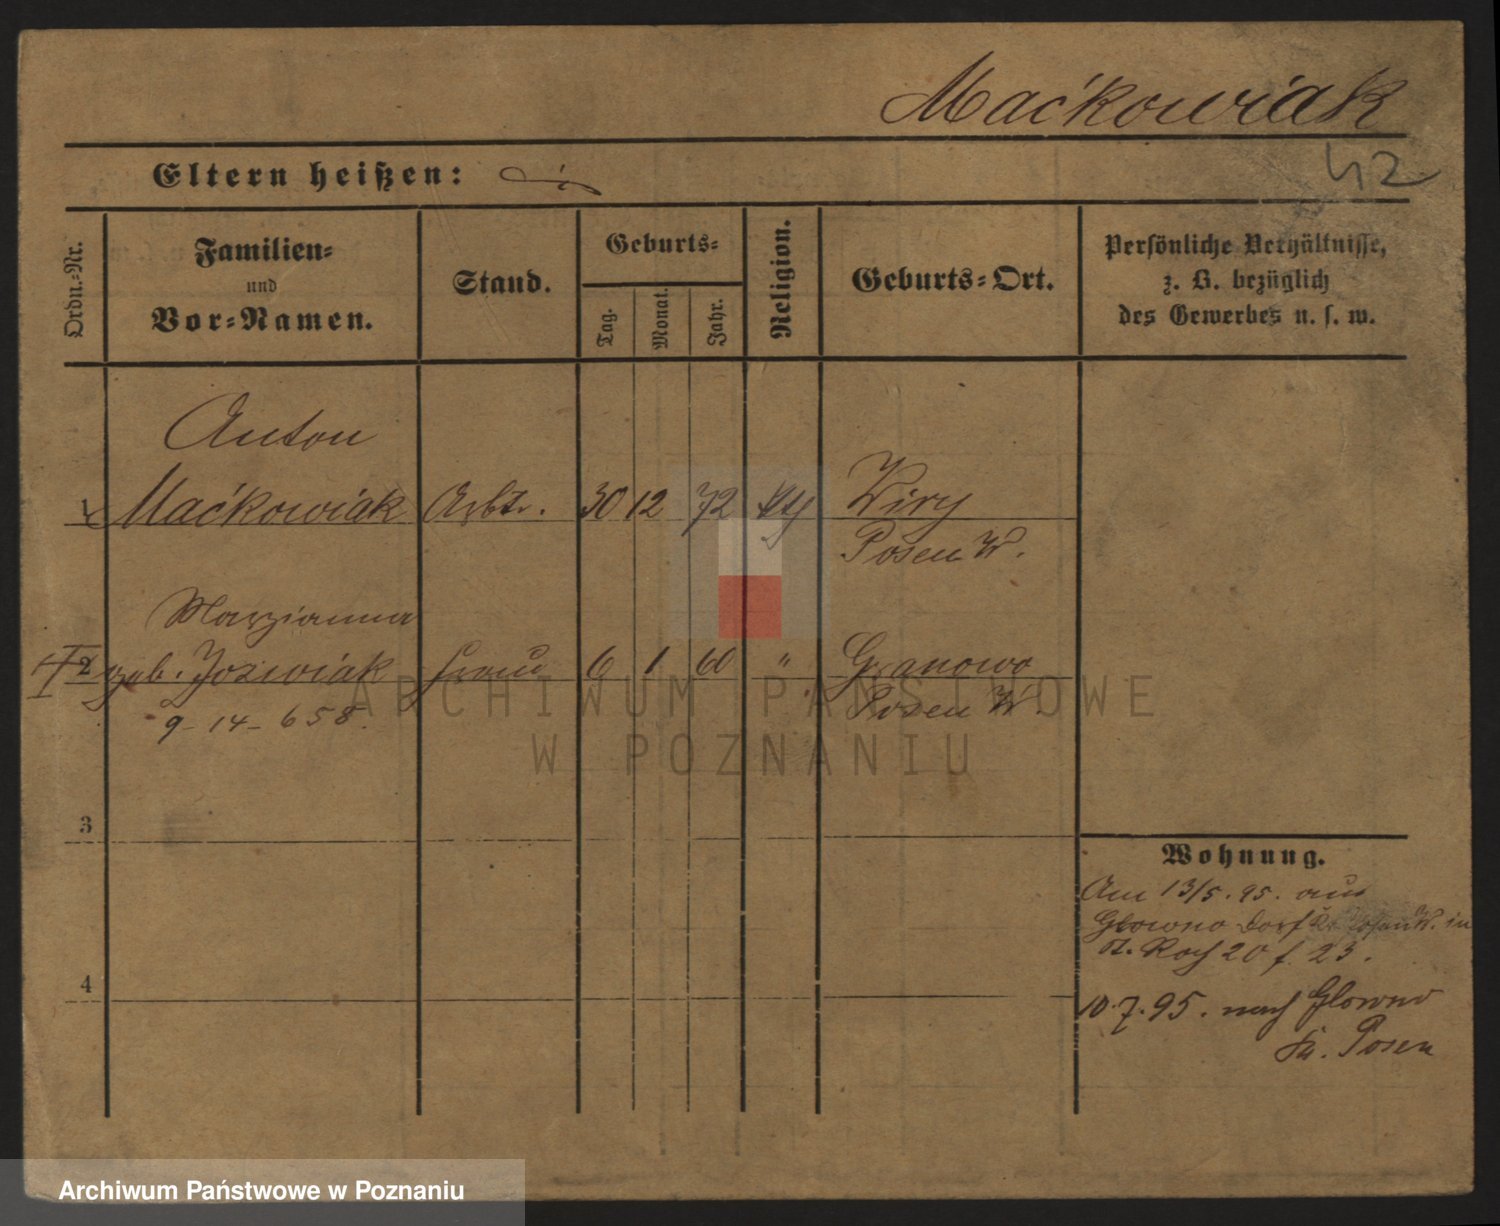 Maćkowiak
42
Eltern heißen:
Ordn.-Nr.
Familien-
und
Vor-Namen.
Stand.
Geburts-
Tag.
Monat.
Jahr.
Religion.
Geburts-Ort.
Persönliche Verhältnisse,
z. B. bezüglich
des Gewerbes u. s. w.
Anton
1 Maćkowiak Arbtr. 30 12 72 kth Wiry
Posen W.
Marzianna
2 geb. Joswiak Frau 6 1 60 " Granowo
9-14-658. Posen W.
3
4
Wohnung.
Am 13/5.95. aus
Glowno Dorf Kr. Posen W. in
St. Roch 20 f. 23.
10.7.95. nach Glowno
Kr. Posen
ARCHIWUM PAŃSTWOWE
W POZNANIU
Archiwum Państwowe w Poznaniu